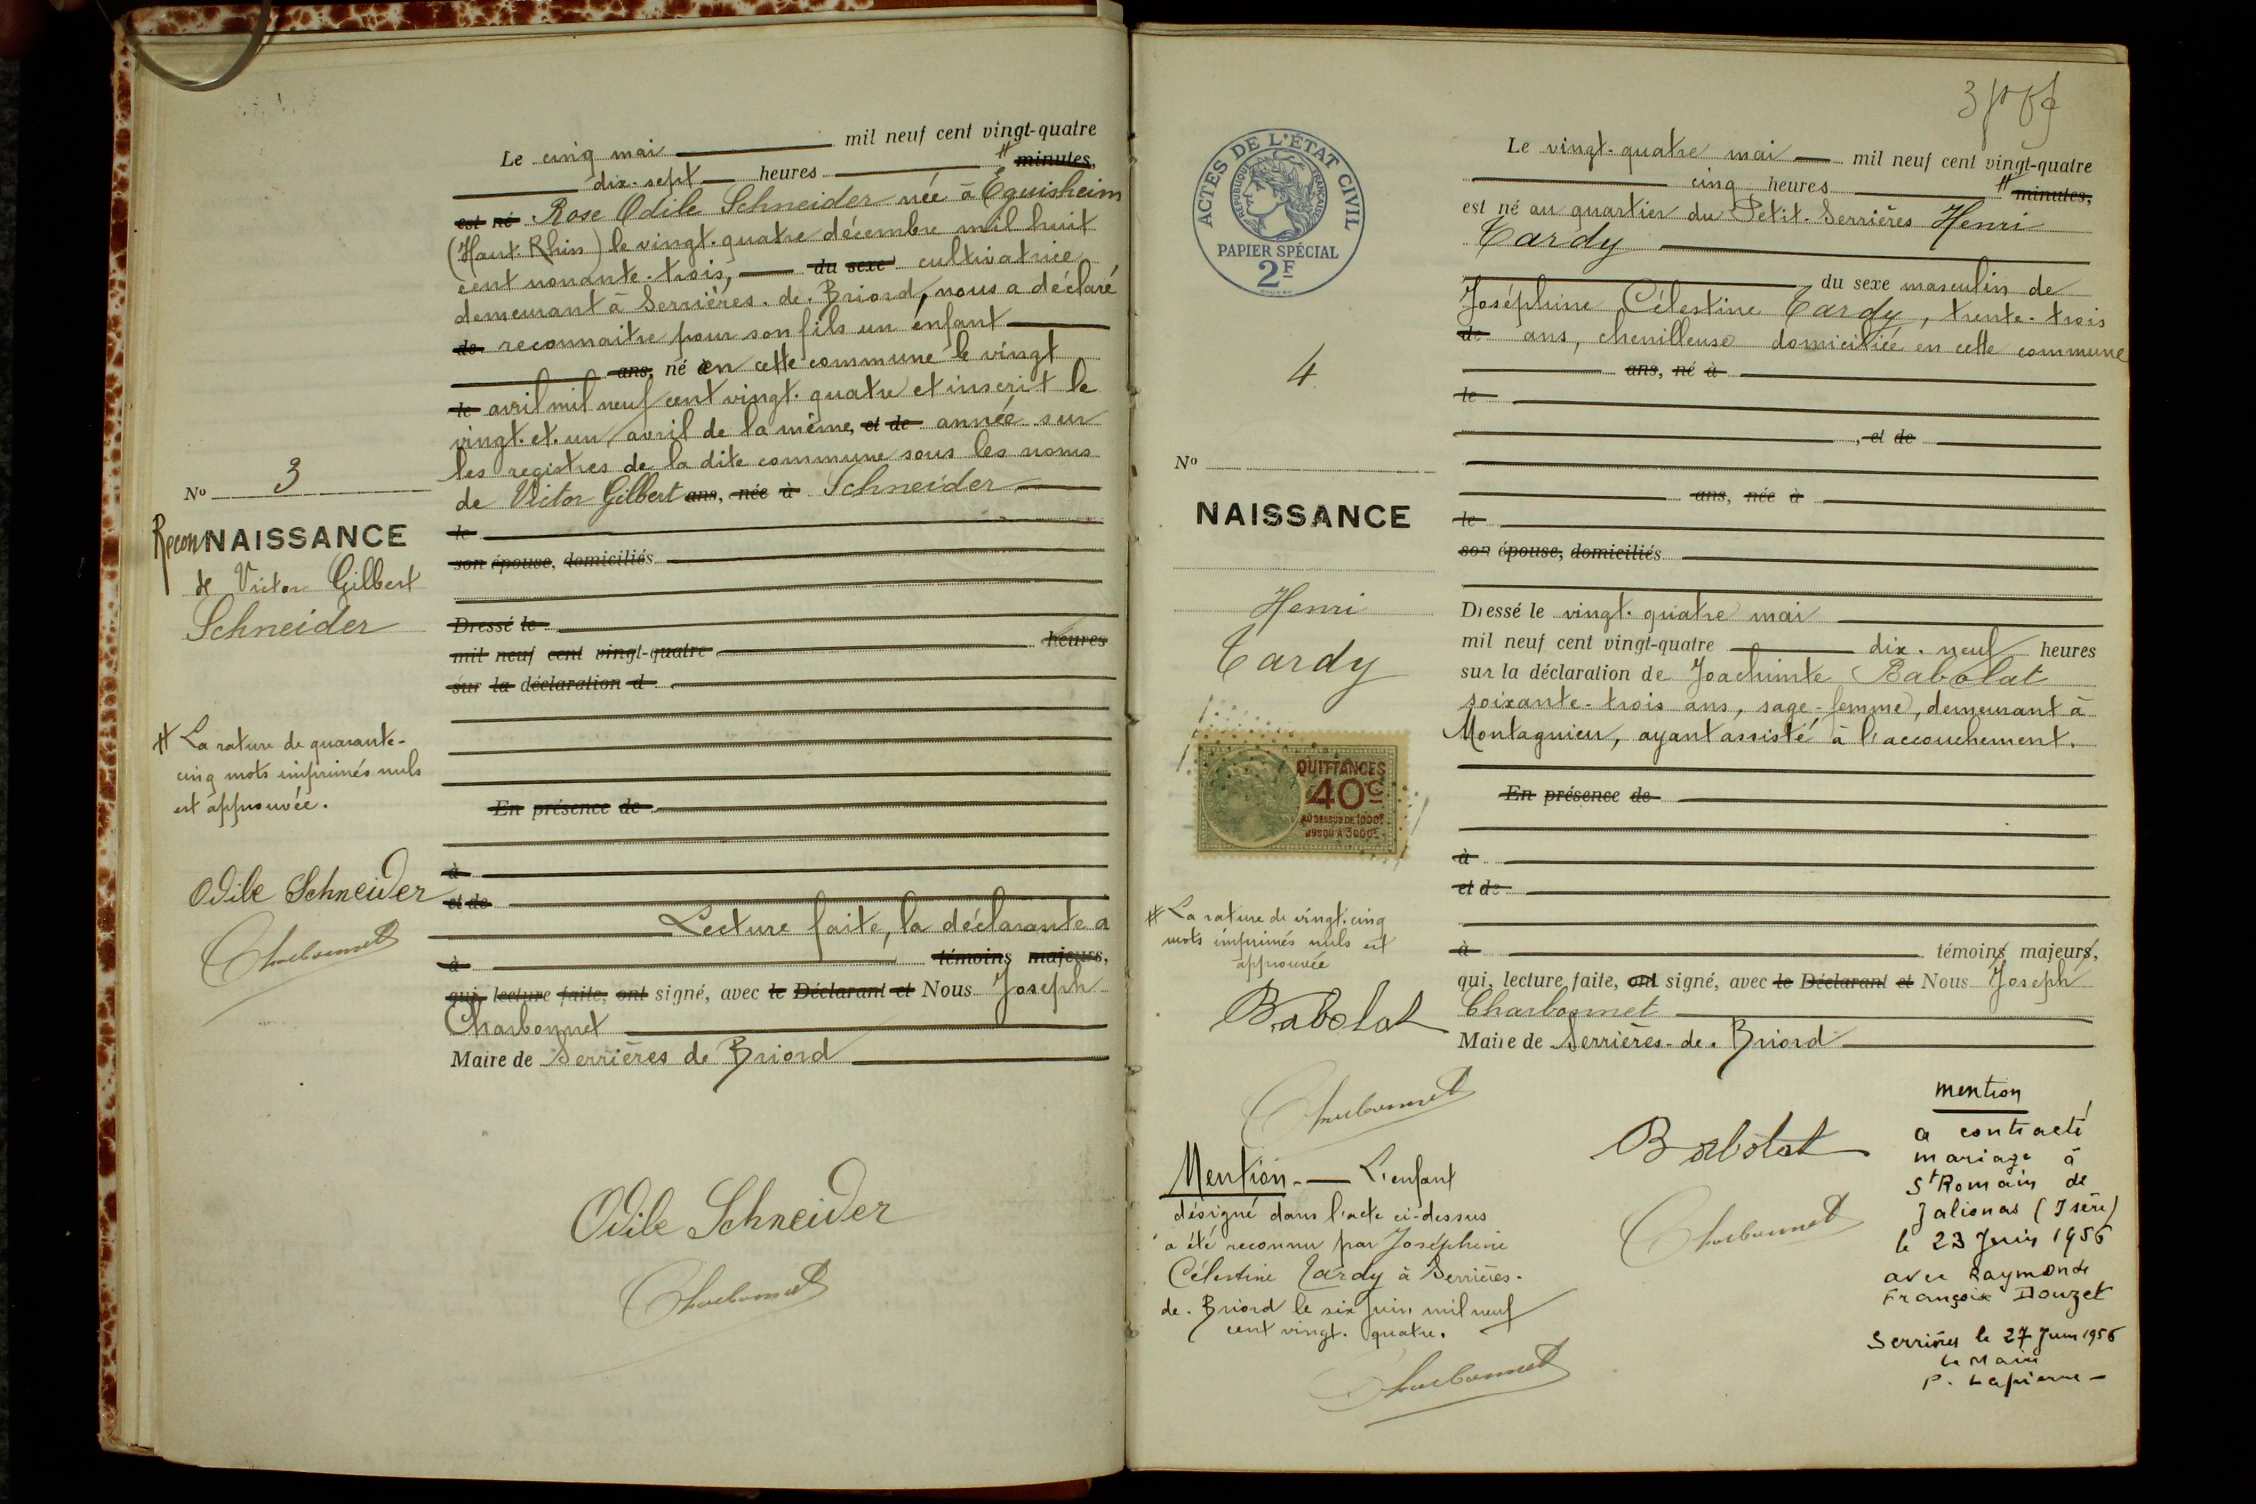 Le cinq mai mil neuf cent vingt-quatre
dix-sept heures # minutes,
est né Rose Odile Schneider née à Eguisheim
(Haut-Rhin) le vingt-quatre décembre mil huit
cent nonante-trois, du sexe cultivatrice
demeurant à Serrières-de-Briord, nous a déclaré
de reconnaitre pour son fils un enfant
ans, né en cette commune le vingt
le avril mil neuf cent vingt-quatre et inscrit le
vingt-et-un avril de la même, et de année sur
les registres de la dite commune sous les noms
de Victor Gilbert ans, née à Schneider
le
son épouse, domiciliés
Dressé le
mil neuf cent vingt-quatre heures
sur la déclaration d
En présence de
à
et de
Lecture faite, la déclarante a
à témoins majeurs,
qui, lecture faite, ont signé, avec le Déclarant et Nous Joseph
Charbonnet
Maire de Serrières de Briord
Odile Schneider
Charbonnet
No 3
ReconNAISSANCE
de Victor Gilbert
Schneider
# La rature de quarante-
cinq mots imprimés nuls
est approuvée.
Odile Schneider
Charbonnet
3
ACTES DE L'ÉTAT CIVIL
RÉPUBLIQUE FRANÇAISE
PAPIER SPÉCIAL
2F
4
No
NAISSANCE
Henri
Tardy
QUITTANCES
40c
AU DESSUS DE 1000F
JUSQU'A 3000F
# La rature de vingt-cinq
mots imprimés nuls est
approuvée
Babolat
Charbonnet
Mention. L'enfant
désigné dans l'acte ci-dessus
a été reconnu par Joséphine
Célestine Tardy à Serrières-
de-Briord le six juin mil neuf
cent vingt-quatre.
Charbonnet
Le vingt-quatre mai mil neuf cent vingt-quatre
cinq heures # minutes,
est né au quartier du Petit-Serrières Henri
Tardy
du sexe masculin de
Joséphine Célestine Tardy, trente-trois
de ans, chenilleuse domiciliée en cette commune
ans, né à
le
, et de
ans, née à
le
son épouse, domiciliés
Dressé le vingt-quatre mai
mil neuf cent vingt-quatre dix-neuf heures
sur la déclaration de Joachimte Babolat
soixante-trois ans, sage-femme, demeurant à
Montagnieu, ayant assisté à l'accouchement.
En présence de
à
et de
à témoins majeurs,
qui, lecture faite, ont signé, avec le Déclarant et Nous Joseph
Charbonnet
Maire de Serrières-de-Briord
Babolat
Charbonnet
mention
a contracté
mariage à
St Romain de
Jalionas (Isère)
le 23 Juin 1956
avec Raymonde
Françoise Douzet
Serrières le 27 Juin 1956
Le Maire
P. Lapierre